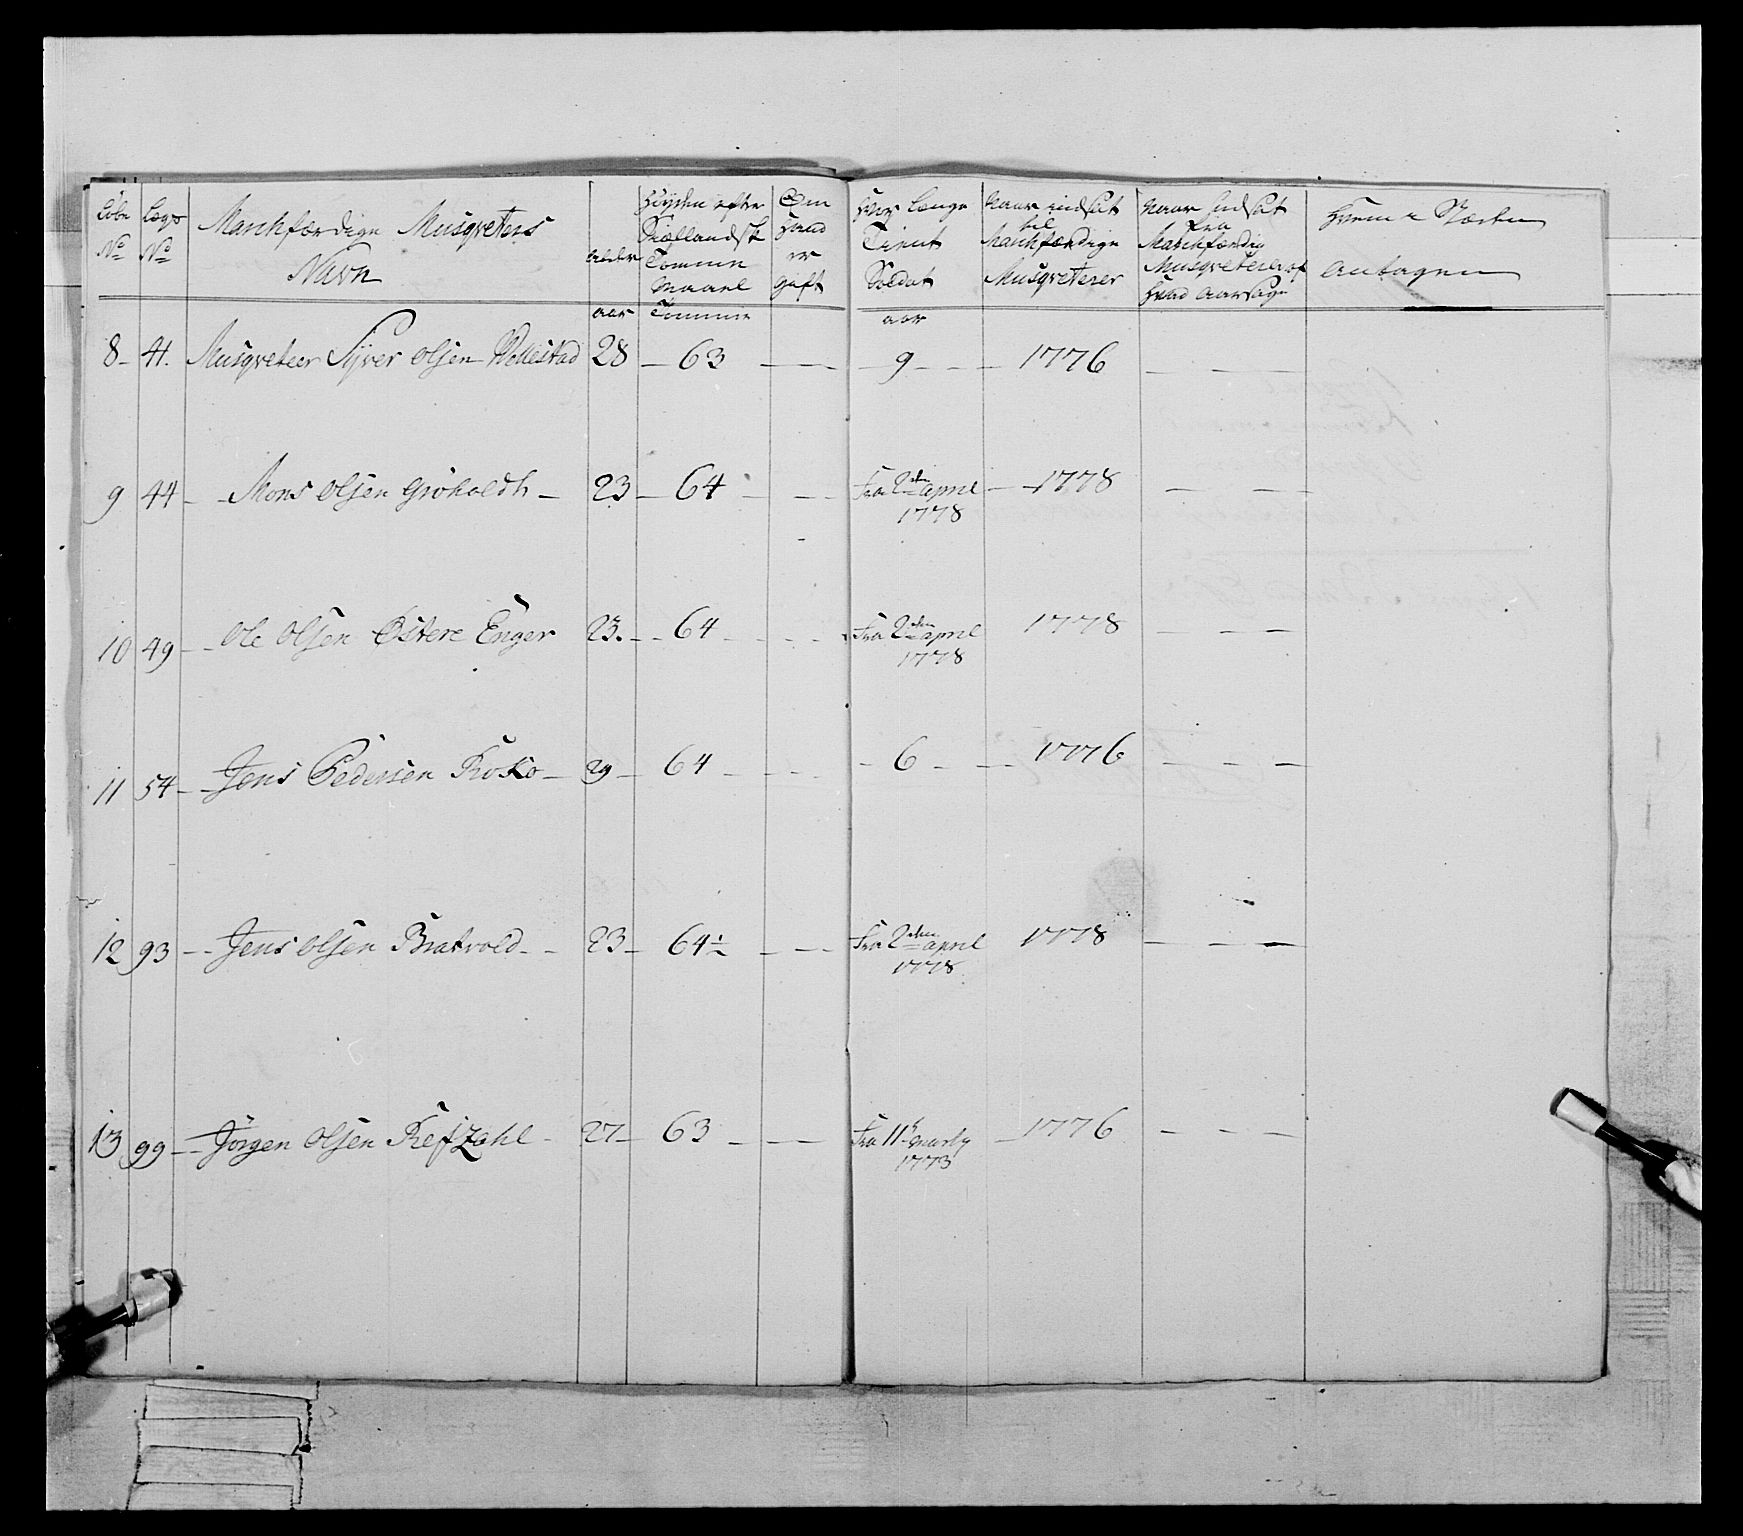 Löbe No | Lægs No | Marchfærdige Musqveters Navn | alder | Höyden efter Siællandsk Tomme Maael | Om Hand er gift | Hvor Længe Tient Soldat | Naar indsat til Marchfærdige Musqveterer | Naar Indsat fra Marchfærdig Musqveterer af Hvad Aarsage | Hvem Næsten Antagen
aar | Tomme | aar
8 - | 41. | Musqveteer Syver Olsen Wollestad | 28 | 63 | 9 | 1776
9 | 44 | Mons Olsen Groholdt | 23 | 64 | Fra 2den april 1778 | 1778
10 | 49 | Ole Olsen Østere Enger | 23. | 64 | Fra 2den april 1778 | 1778
11 | 54 | Jens Pedersen Koko | 29 | 64 | 6 | 1776
12 | 93 | Jens Olsen Bratvold | 23 | 64½ | Fra 2den april 1778 | 1778
13 | 99 | Jörgen Olsen Refzahl | 27 | 63 | Fra 11t marty 1773 | 1776